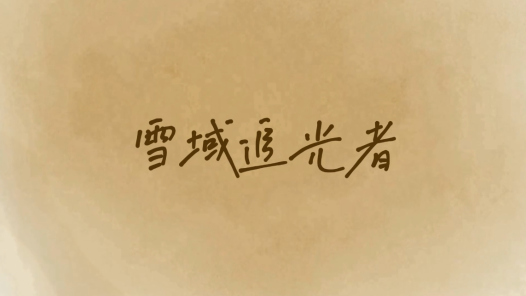 雪域追光者